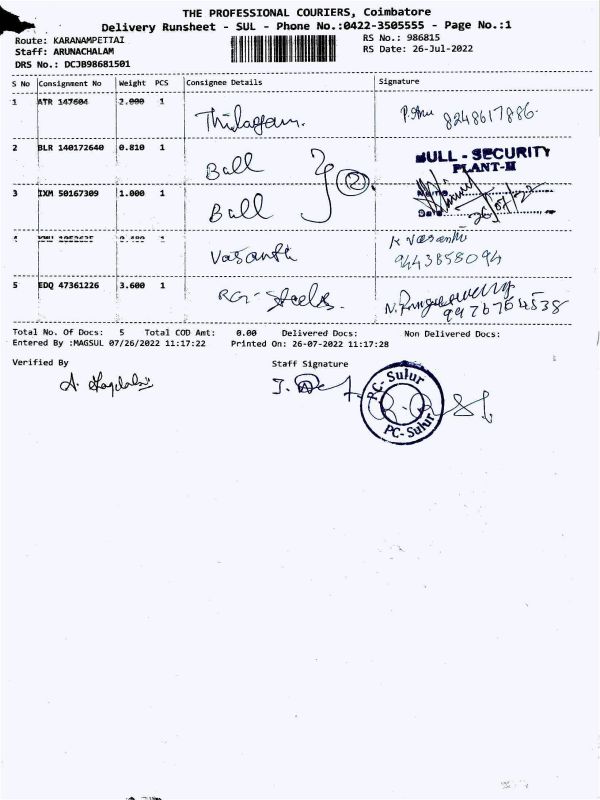 THE PROFESSIONAL COURIERS, Coimbatore
Delivery Runsheet - SUL - Phone No.:0422-3505555 - Page No.:1
Route: KARANAMPETTAI RS No.: 986815
Staff: ARUNACHALAM RS Date: 26-Jul-2022
DRS No.: DCJB98681501
S No Consignment No Weight PCS Consignee Details Signature
1 ATR 147604 2.000 1 Thilagam. 8248617886.
2 BLR 140172640 0.810 1 Ball BULL - SECURITY
PLANT-II
3 IXM 50167309 1.000 1 Ball 26/07/22
4 1 Vasanthi K Vasanthi
9443858094
5 EDQ 47361226 3.600 1 Steels.
9976764538
Total No. Of Docs: 5 Total COD Amt: 0.00 Delivered Docs: Non Delivered Docs:
Entered By :MAGSUL 07/26/2022 11:17:22 Printed On: 26-07-2022 11:17:28
Verified By Staff Signature
PC-Sulur
PC-Sulur